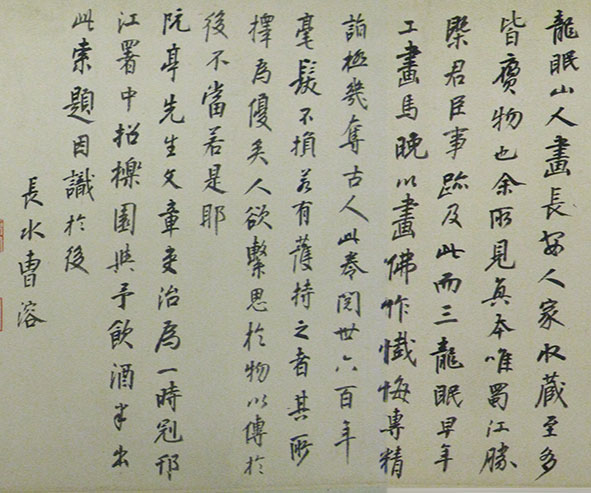 龍眠山人畫長安人家收藏至多
皆贗物也余所見真本唯蜀江勝
槩君臣事跡及此而三龍眠早年
工畫馬晚以畫佛作懺悔專精
詣極幾奪古人此卷閱世六百年
毫髮不損若有護持之者其所
擇為優矣人欲繫思於物以傳於
後不當若是耶
阮亭先生文章吏治為一時冠邗
江署中招櫟園與予飲酒半出
此索題因識於後
長水曹溶